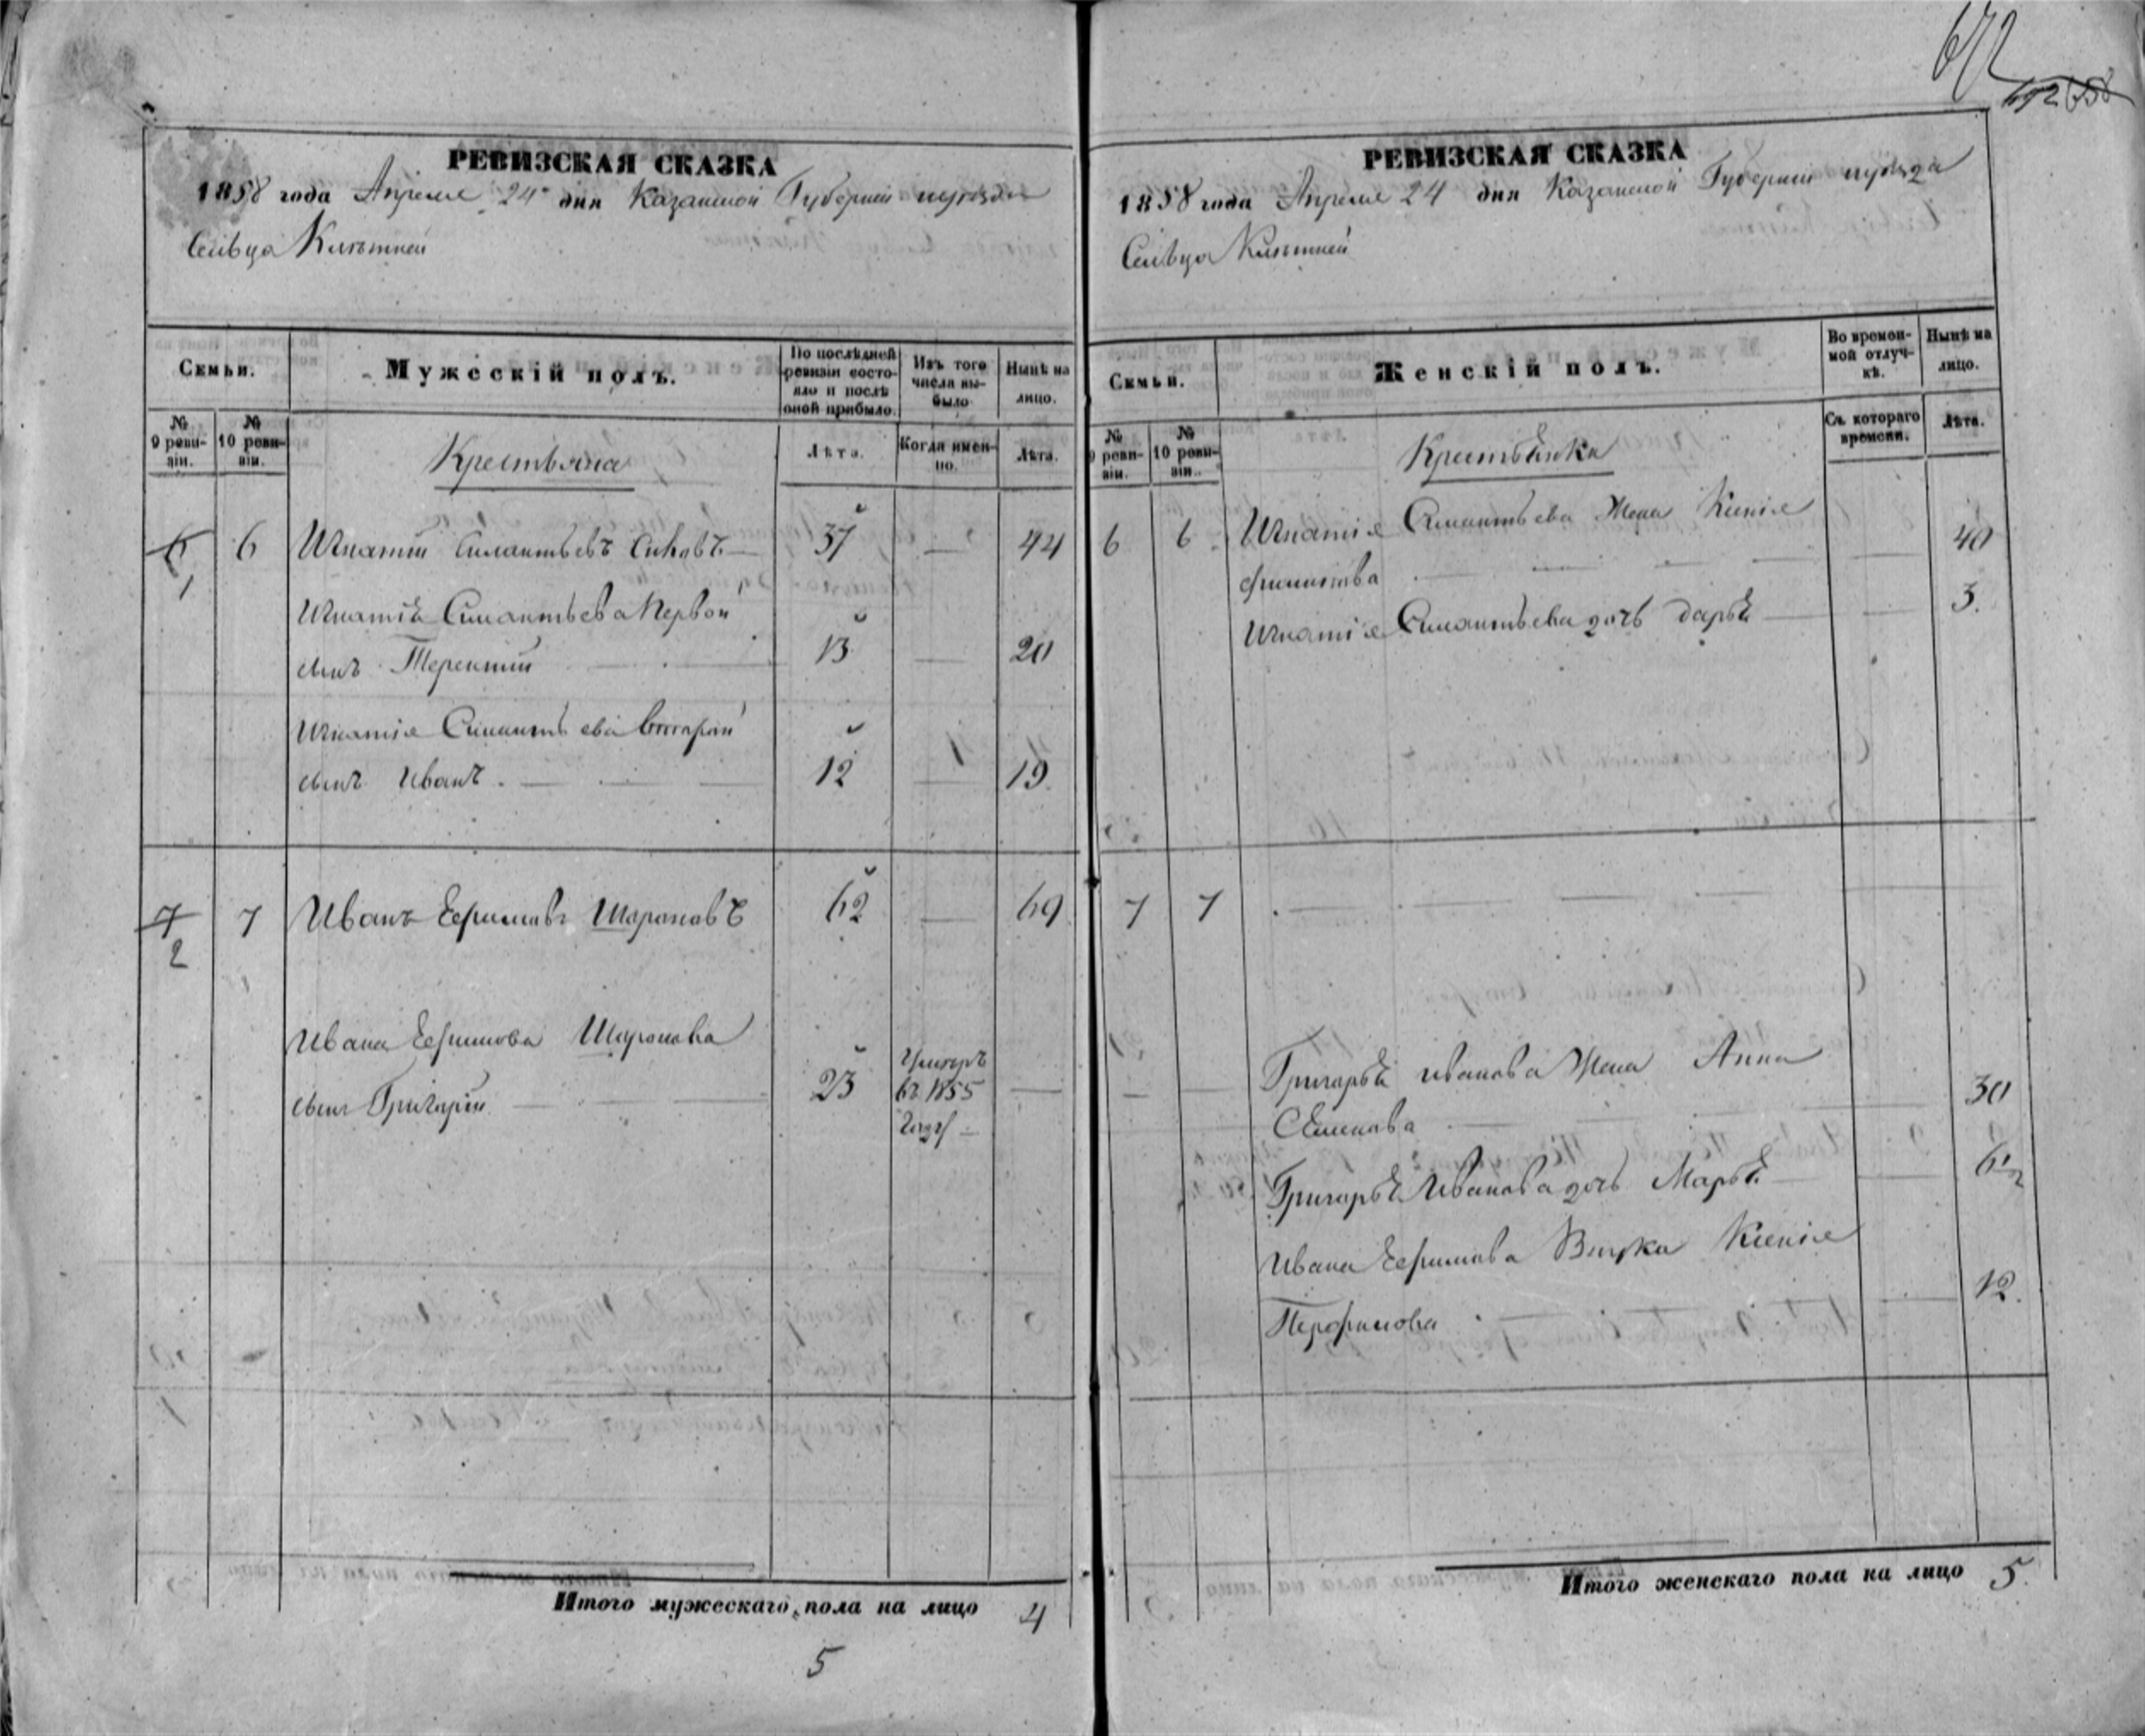 672
РЕВИЗСКАЯ СКАЗКА
1858 года Апреля 24 дня Казанской Губернии уезда
Сельца
Семьи.
Мужескій полъ.
По послѣдней ревизіи состояло и послѣ оной прибыло.
Изъ того числа выбыло
Нынѣ на лицо.
№ 9 ревизіи.
№ 10 ревизіи.
Крестьяна
Лѣта.
Когда именно.
Лѣта.
6 6 Игнатий Силантьевъ Сиковъ 37 — 44
1
Игнатiя Силантьева Первой
сынъ Терентий 13 — 20
Игнатiя Силантьева вторай
сынъ Иванъ 12 — 19
7 7 Иванъ Ефимовъ Шароновъ 62 — 69
2
Ивана Ефимова Шаронова
сынъ Григорий 23 — 
въ 1855
году
Итого мужескаго пола на лицо 4
5
РЕВИЗСКАЯ СКАЗКА
1858 года Апреля 24 дня Казанской Губернии уезда
Сельца
Семьи.
Женскій полъ.
Во временной отлучкѣ.
Нынѣ на лицо.
№ 9 ревизіи.
№ 10 ревизіи.
Крестьянка
Съ котораго времени.
Лѣта.
6 6 Игнатiя Силантьева Жена Ксенiя
Филиппова — 40
Игнатiя Силантьева дочь Дарья — 3.
7 7 —
Григорья Иванова Жена Анна
Семенова 30
Григорья Иванова дочь Марья — 6 1/2
Ивана Ефимова Внука Ксенiя
— 12.
Итого женскаго пола на лицо 5.